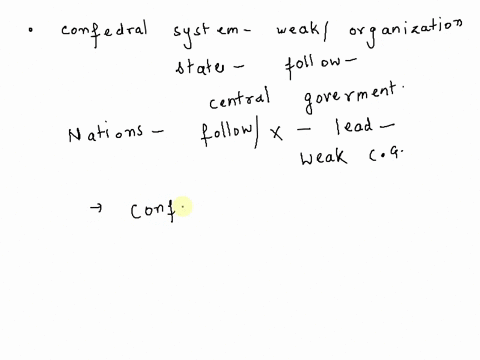 • confedral system - weak/ organization
state - follow -
central goverment.
Nations - follow/ x - lead -
weak c.G.
→ conf.